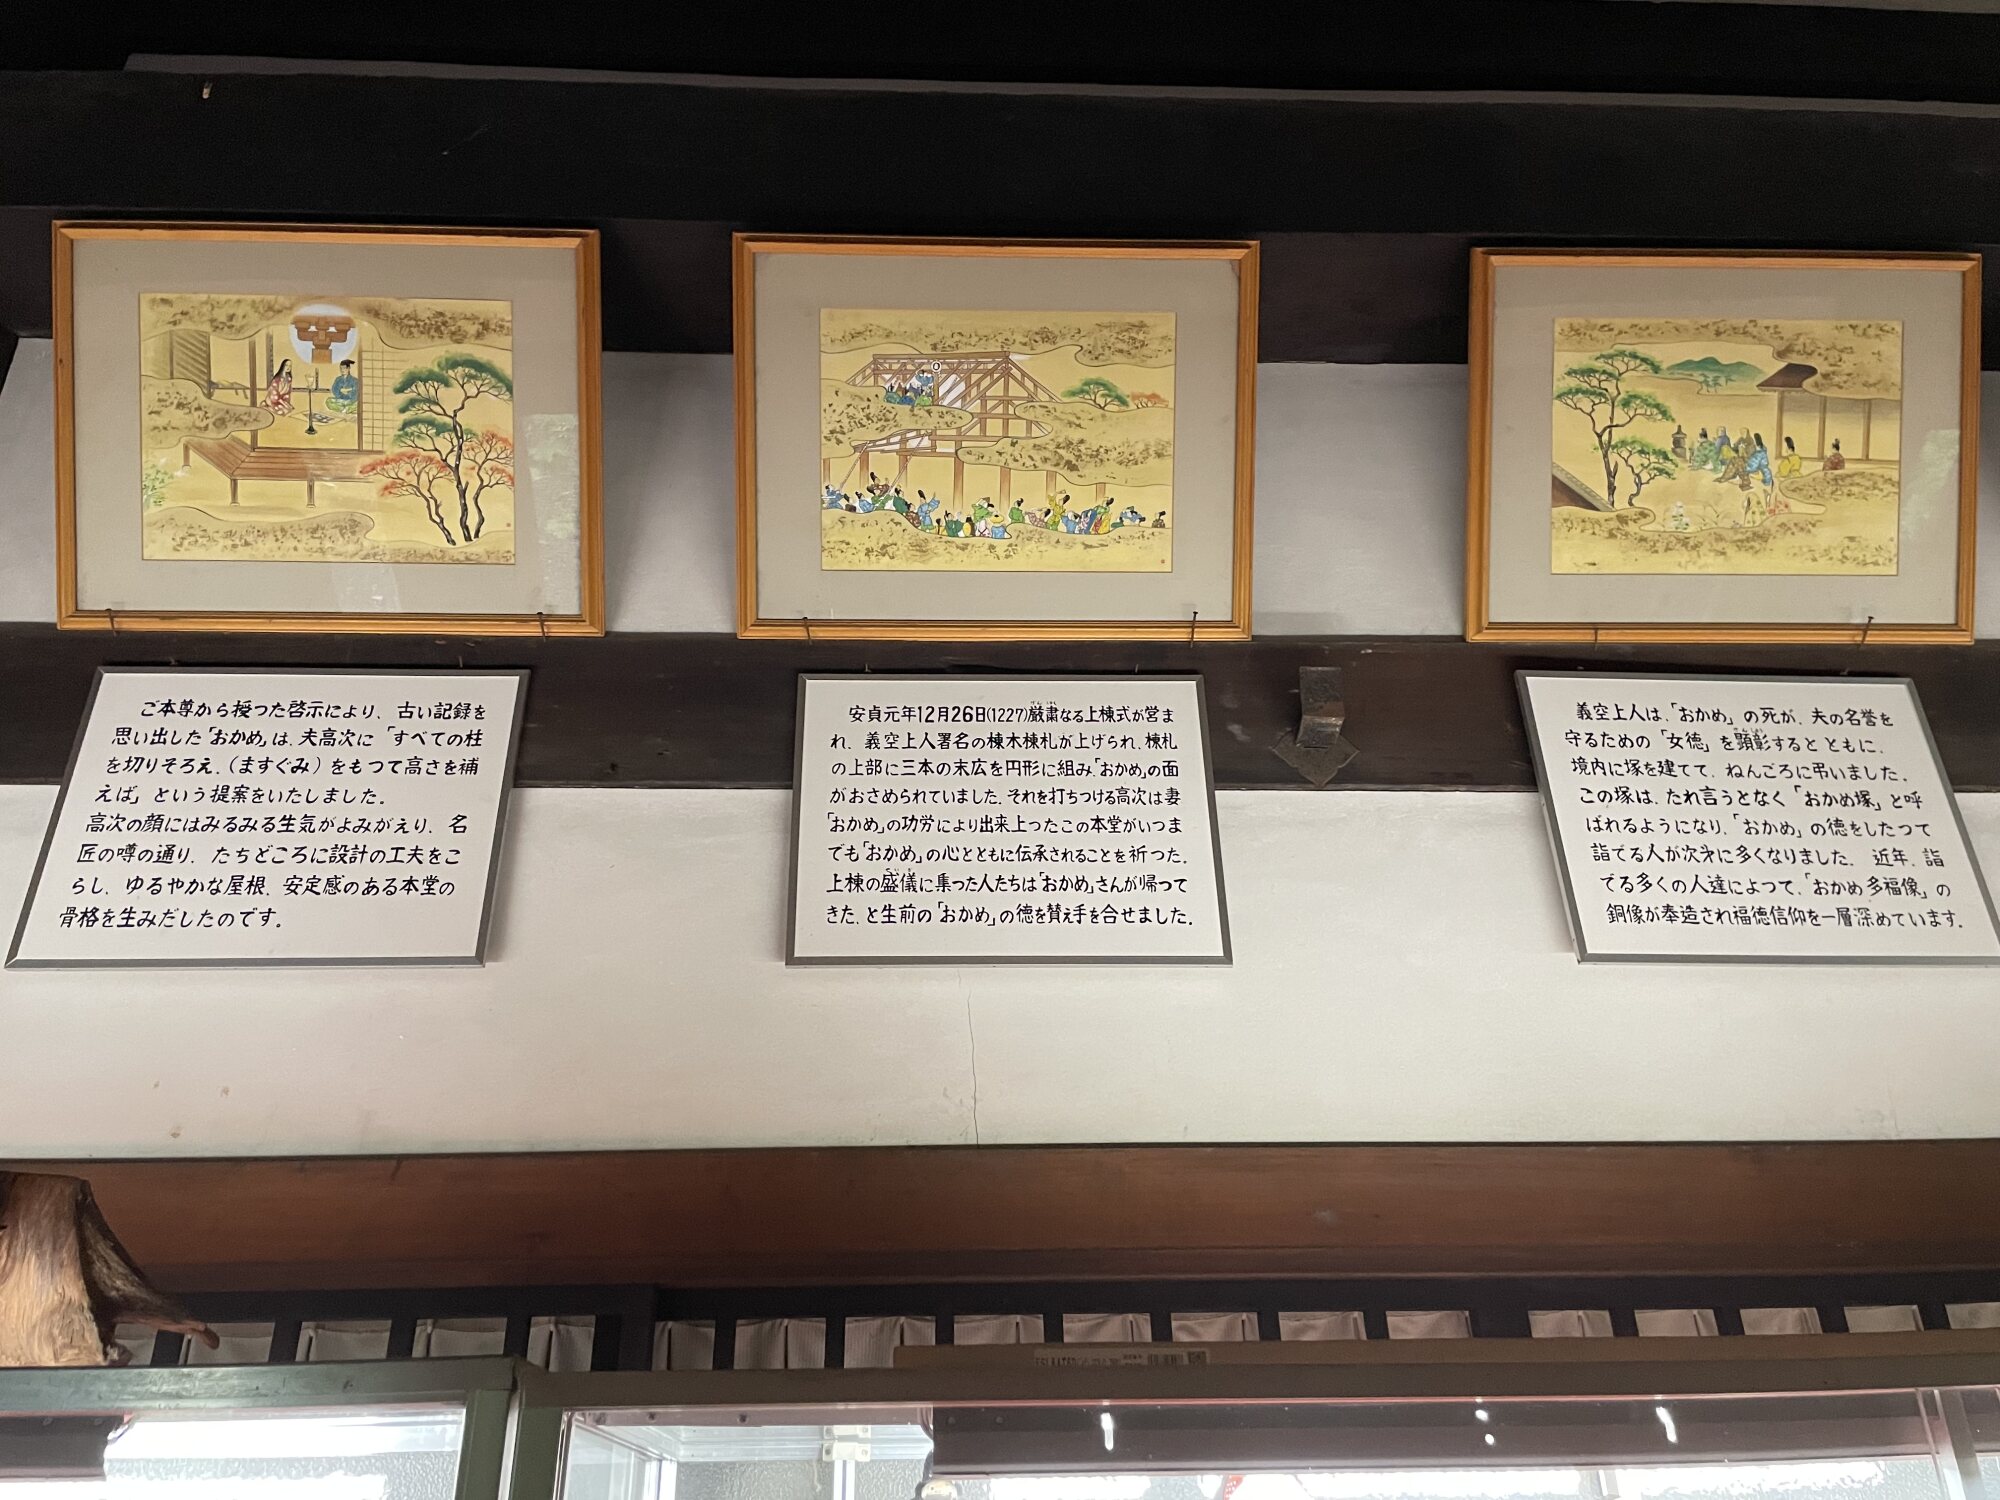 ご本尊から授つた啓示により、古い記録を
思い出した「おかめ」は、夫高次に「すべての柱
を切りそろえ、(ますぐみ)をもつて高さを補
えば」という提案をいたしました。
高次の顔にはみるみる生気がよみがえり、名
匠の噂の通り、たちどころに設計の工夫をこ
らし、ゆるやかな屋根、安定感のある本堂の
骨格を生みだしたのです。
安貞元年12月26日(1227)厳粛なる上棟式が営ま
れ、義空上人署名の棟木棟札が上げられ、棟札
の上部に三本の末広を円形に組み、「おかめ」の面
がおさめられていました。それを打ちつける高次は妻
「おかめ」の功労により出来上つたこの本堂がいつま
でも「おかめ」の心とともに伝承されることを祈つた。
上棟の盛儀に集った人たちは「おかめ」さんが帰つて
きた、と生前の「おかめ」の徳を賛え手を合せました。
義空上人は、「おかめ」の死が、夫の名誉を
守るための「女徳」を顕彰するとともに、
境内に塚を建てて、ねんごろに弔いました。
この塚は、たれ言うとなく「おかめ塚」と呼
ばれるようになり、「おかめ」の徳をしたつて
詣でる人が次才に多くなりました。近年、詣
でる多くの人達によつて、「おかめ多福像」の
銅像が奉造され福徳信仰を一層深めています。